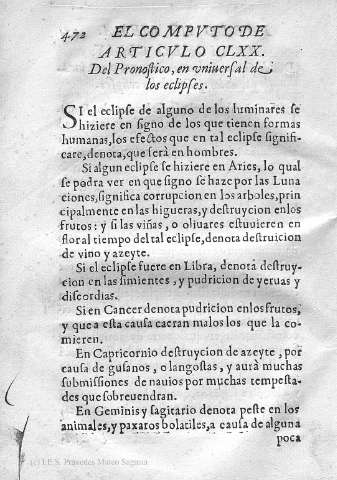 472 EL COMPVTO DE
ARTICVLO CLXX.
Del Pronostico, en vniuersal de
los eclipses.
SI el eclipse de alguno de los luminares se
hiziere en signo de los que tienen formas
humanas, los efectos que en tal eclipse signifi-
care, denota, que será en hombres.
Si algun eclipse se hiziere en Aries, lo qual
se podra ver en que signo se haze por las Luna
ciones, significa corrupcion en los arboles, prin
cipalmente en las higueras, y destruycion en los
frutos: y si las viñas, o oliuares estuuieren en
floral tiempo del tal eclipse, denota destruicion
de vino y azeyte.
Si el eclipse fuere en Libra, denota destruy-
cion en las simientes, y pudricion de yeruas y
discordias.
Si en Cancer denota pudricion en los frutos,
y que a esta causa caeran malos los que la co-
mieren.
En Capricornio destruycion de azeyte, por
causa de gusanos, o langostas, y aurà muchas
submissiones de nauios por muchas tempesta-
des que sobreuendran.
En Geminis y sagitario denota peste en los
animales, y paxaros bolatiles, a causa de alguna
poca
(c) I.E.S. Práxedes Mateo Sagasta